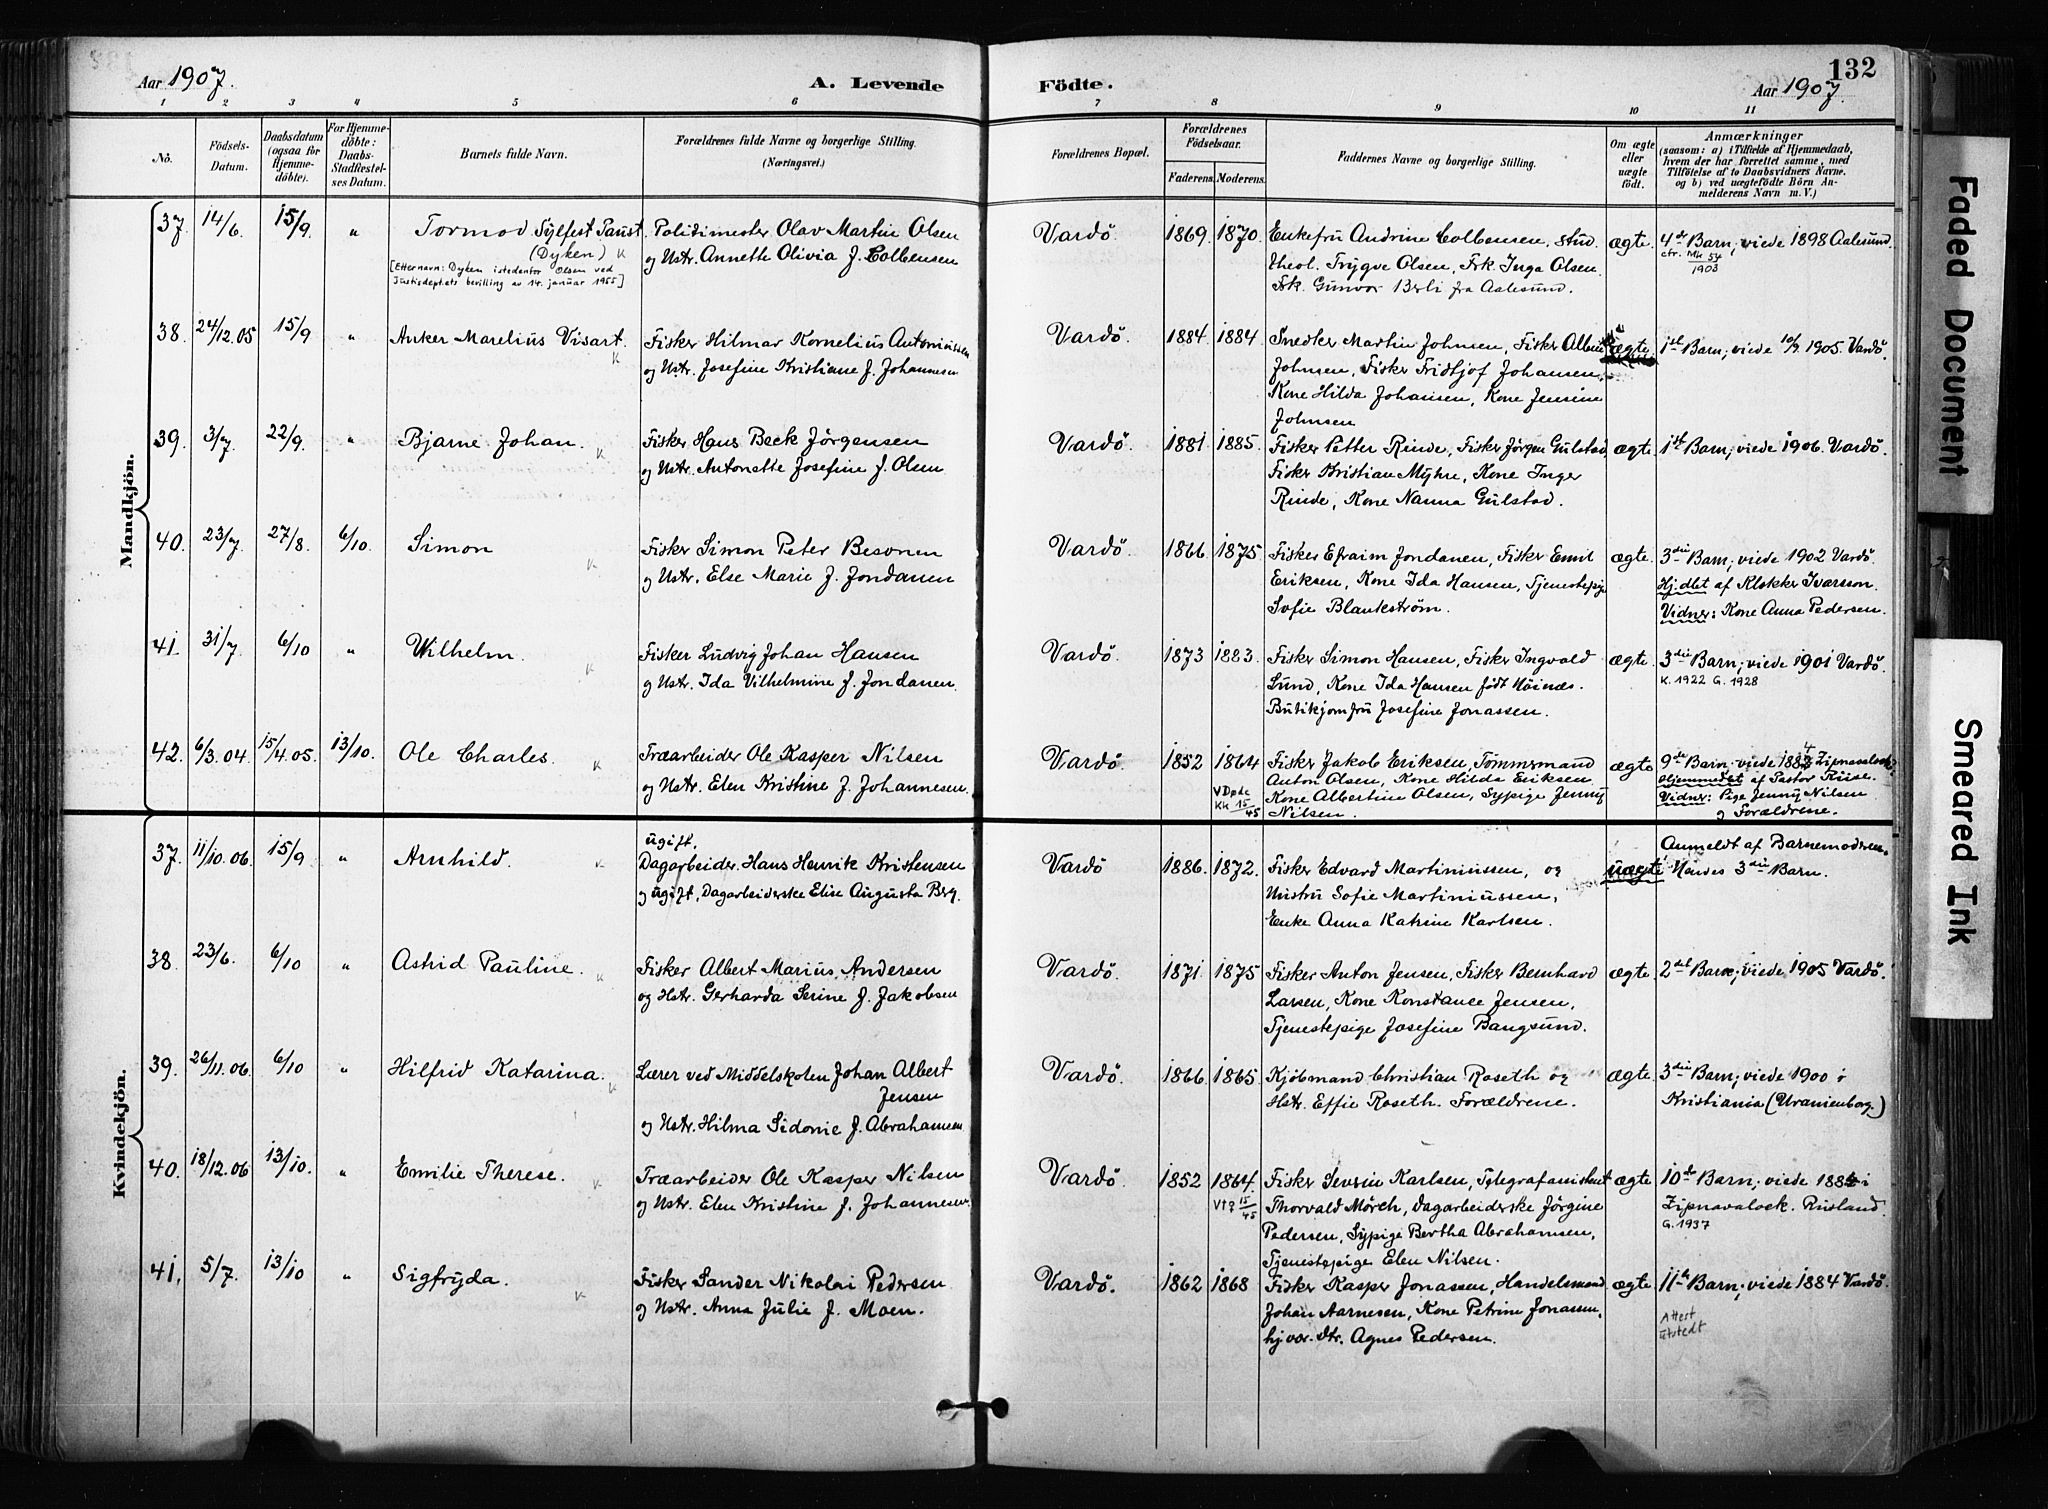 132
Aar 1907.
A. Levende Födte.
Aar 1907.
1 2 3 4 5 6 7 8 9 10 11
Nô.
Födsels-Datum.
Daabsdatum (ogsaa for Hjemme-döbte).
For Hjemme-döbte: Daabs-Stadfæstel-ses Datum.
Barnets fulde Navn.
Forældrenes fulde Navne og borgerlige Stilling.
(Næringsvei.)
Forældrenes Bopæl.
Forældrenes Födselsaar.
Faderens. Moderens.
Faddernes Navne og borgerlige Stilling.
Om ægte eller uægte födt.
Anmærkninger
(saasom: a) i Tilfælde af Hjemmedaab, hvem der har forrettet samme, med Tilföielse af to Daabsvidners Navne. og b) ved uægtefödte Börn An-melderens Navn m. V.)
Mandkjön.
37. 14/6. 15/9. " Tormod Sylfest Faust. Politimester Olav Martin Olsen Vardö. 1869. 1870. Enkefru Andrine Colbensen, stud. ægte. 4de Barn; viede 1898 Aalesund.
(Dyken) og Hstr. Annette Olivia f. Colbensen theol. Trygve Olsen, Frk. Inga Olsen, cfr. Mk 54/1903
[Etternavn: Dyken istedenfor Olsen ved Frk. Gunvor Berli fra Aalesund.
Justisdept.ets bevilling av 14. januar 1955]
38. 24/12.05 15/9 " Anker Marelius Visart. Fisker Hilmar Kornelius Antoniussen Vardö. 1884. 1884. Snedker Martin Johnsen, Fisker Albert ægte 1ste Barn; viede 10/9. 1905. Vardö.
og Hstr. Josefine Kristiane f. Johannesen Johnsen, Fisker Fridtjof Johansen,
Kone Hilda Johansen, Kone Jensine
Johnsen
39. 3/7. 22/9. " Bjarne Johan. Fisker Hans Beck Jörgensen Vardö. 1881. 1885. Fisker Petter Rinde, Fisker Jörgen Gulstad, ægte. 1ste Barn; viede 1906. Vardö.
og Hstr. Antonette Josefine f. Olsen Fisker Kristian Myhre, Kone Inger
Rinde, Kone Nanna Gulstad.
40. 23/7. 27/8. 6/10. Simon Fisker Simon Peter Besonen Vardö. 1866. 1875. Fisker Efraim Jondanen, Fisker Emil ægte. 3die Barn; viede 1902 Vardö.
og Hstr. Else Marie f. Jondanen Eriksen, Kone Ida Hansen, Tjenestepige Hj.döbt af Klokker Ivarsson.
Sofie Blankström. Vidner: Kone Anna Pedersen.
41. 31/7. 6/10 " Wilhelm. Fisker Ludvig Johan Hansen Vardö. 1873 1883. Fisker Simon Hansen, Fisker Ingvald ægte. 3die Barn; viede 1901 Vardö.
og Hstr. Ida Vilhelmine f. Jondanen. Lund, Kone Ida Hansen födt Höinæs. K. 1922 G. 1928
Butikjomfru Josefine Jonassen.
42. 6/3.04. 15/4.05. 13/10. Ole Charles. Træarbeider Ole Kasper Nilsen Vardö. 1852 1864 Fisker Jakob Eriksen, Tömmermand ægte 9de Barn; viede 1884
og Hstr. Elen Kristine f. Johannesen. Anton Olsen, Kone Hilda Eriksen Hjemmedöbt af Pastor Riise.
V Døde Kk 15/45 Kone Albertine Olsen, Sypige Jenny Vidner: Pige Jenny Nilsen
Nilsen. og Forældrene.
Kvindekjön.
37. 11/10.06. 15/9 " Arnhild. ugift. Anmeldt af Barnemoderen.
Dagarbeider. Hans Henrik Kristensen Vardö 1886. 1872. Fisker Edvard Martiniussen, og uægte Hendes 3die Barn.
og ugift, Dagarbeiderske Elise Augusta Berg. Hustru Sofie Martiniussen,
Enke Anna Katrine Karlsen.
38. 23/6. 6/10 " Astrid Pauline. Fisker Albert Marius Andersen Vardö. 1871. 1875 Fisker Anton Jensen, Fisker Bernhard ægte. 2det Barn; viede 1905 Vardö.
og Hstr. Gerharda Serine f. Jakobsen Larsen, Kone Konstance Jensen,
Tjenestepige Josefine Bangsund.
39. 26/11.06 6/10 " Hilfrid Katarina. Lærer ved Middelskolen Johan Albert Vardö. 1866. 1865. Kjöbmand Christian Roseth og ægte. 3die Barn; viede 1900 i
Jensen Hstr. Effie Roseth. Forældrene. Kristiania (Uranienborg.)
og Hstr. Hilma Sidonie f. Abrahamsen
40. 18/12.06 13/10. " Emilie Therese. Træarbeider Ole Kasper Nilsen Vardö. 1852 1864. Fisker Severin Karlsen, Telegrafassistent ægte. 10de Barn; viede 1884 i
og Hstr. Elen Kristine f. Johannesen. 15/45 Thorvald Mörch, Dagarbeiderske Jörgine Zipnavalock. Rusland.
Pedersen, Sypige Bertha Abrahamsen, G. 1937
Tjenestepige Elen Nilsen.
41. 5/7. 13/10 " Sigfryda. Fisker Sander Nikolai Pedersen Vardö. 1862 1868 Fisker Kasper Jonassen, Handelsmand ægte. 11te Barn; viede 1884 Vardö.
og Hstr. Anna Julie f. Moen. Johan Aarnesen, Kone Petrine Jonassen, Attest
hjvær. Dtr. Agnes Pedersen. utstedt
Faded Document
Smeared Ink